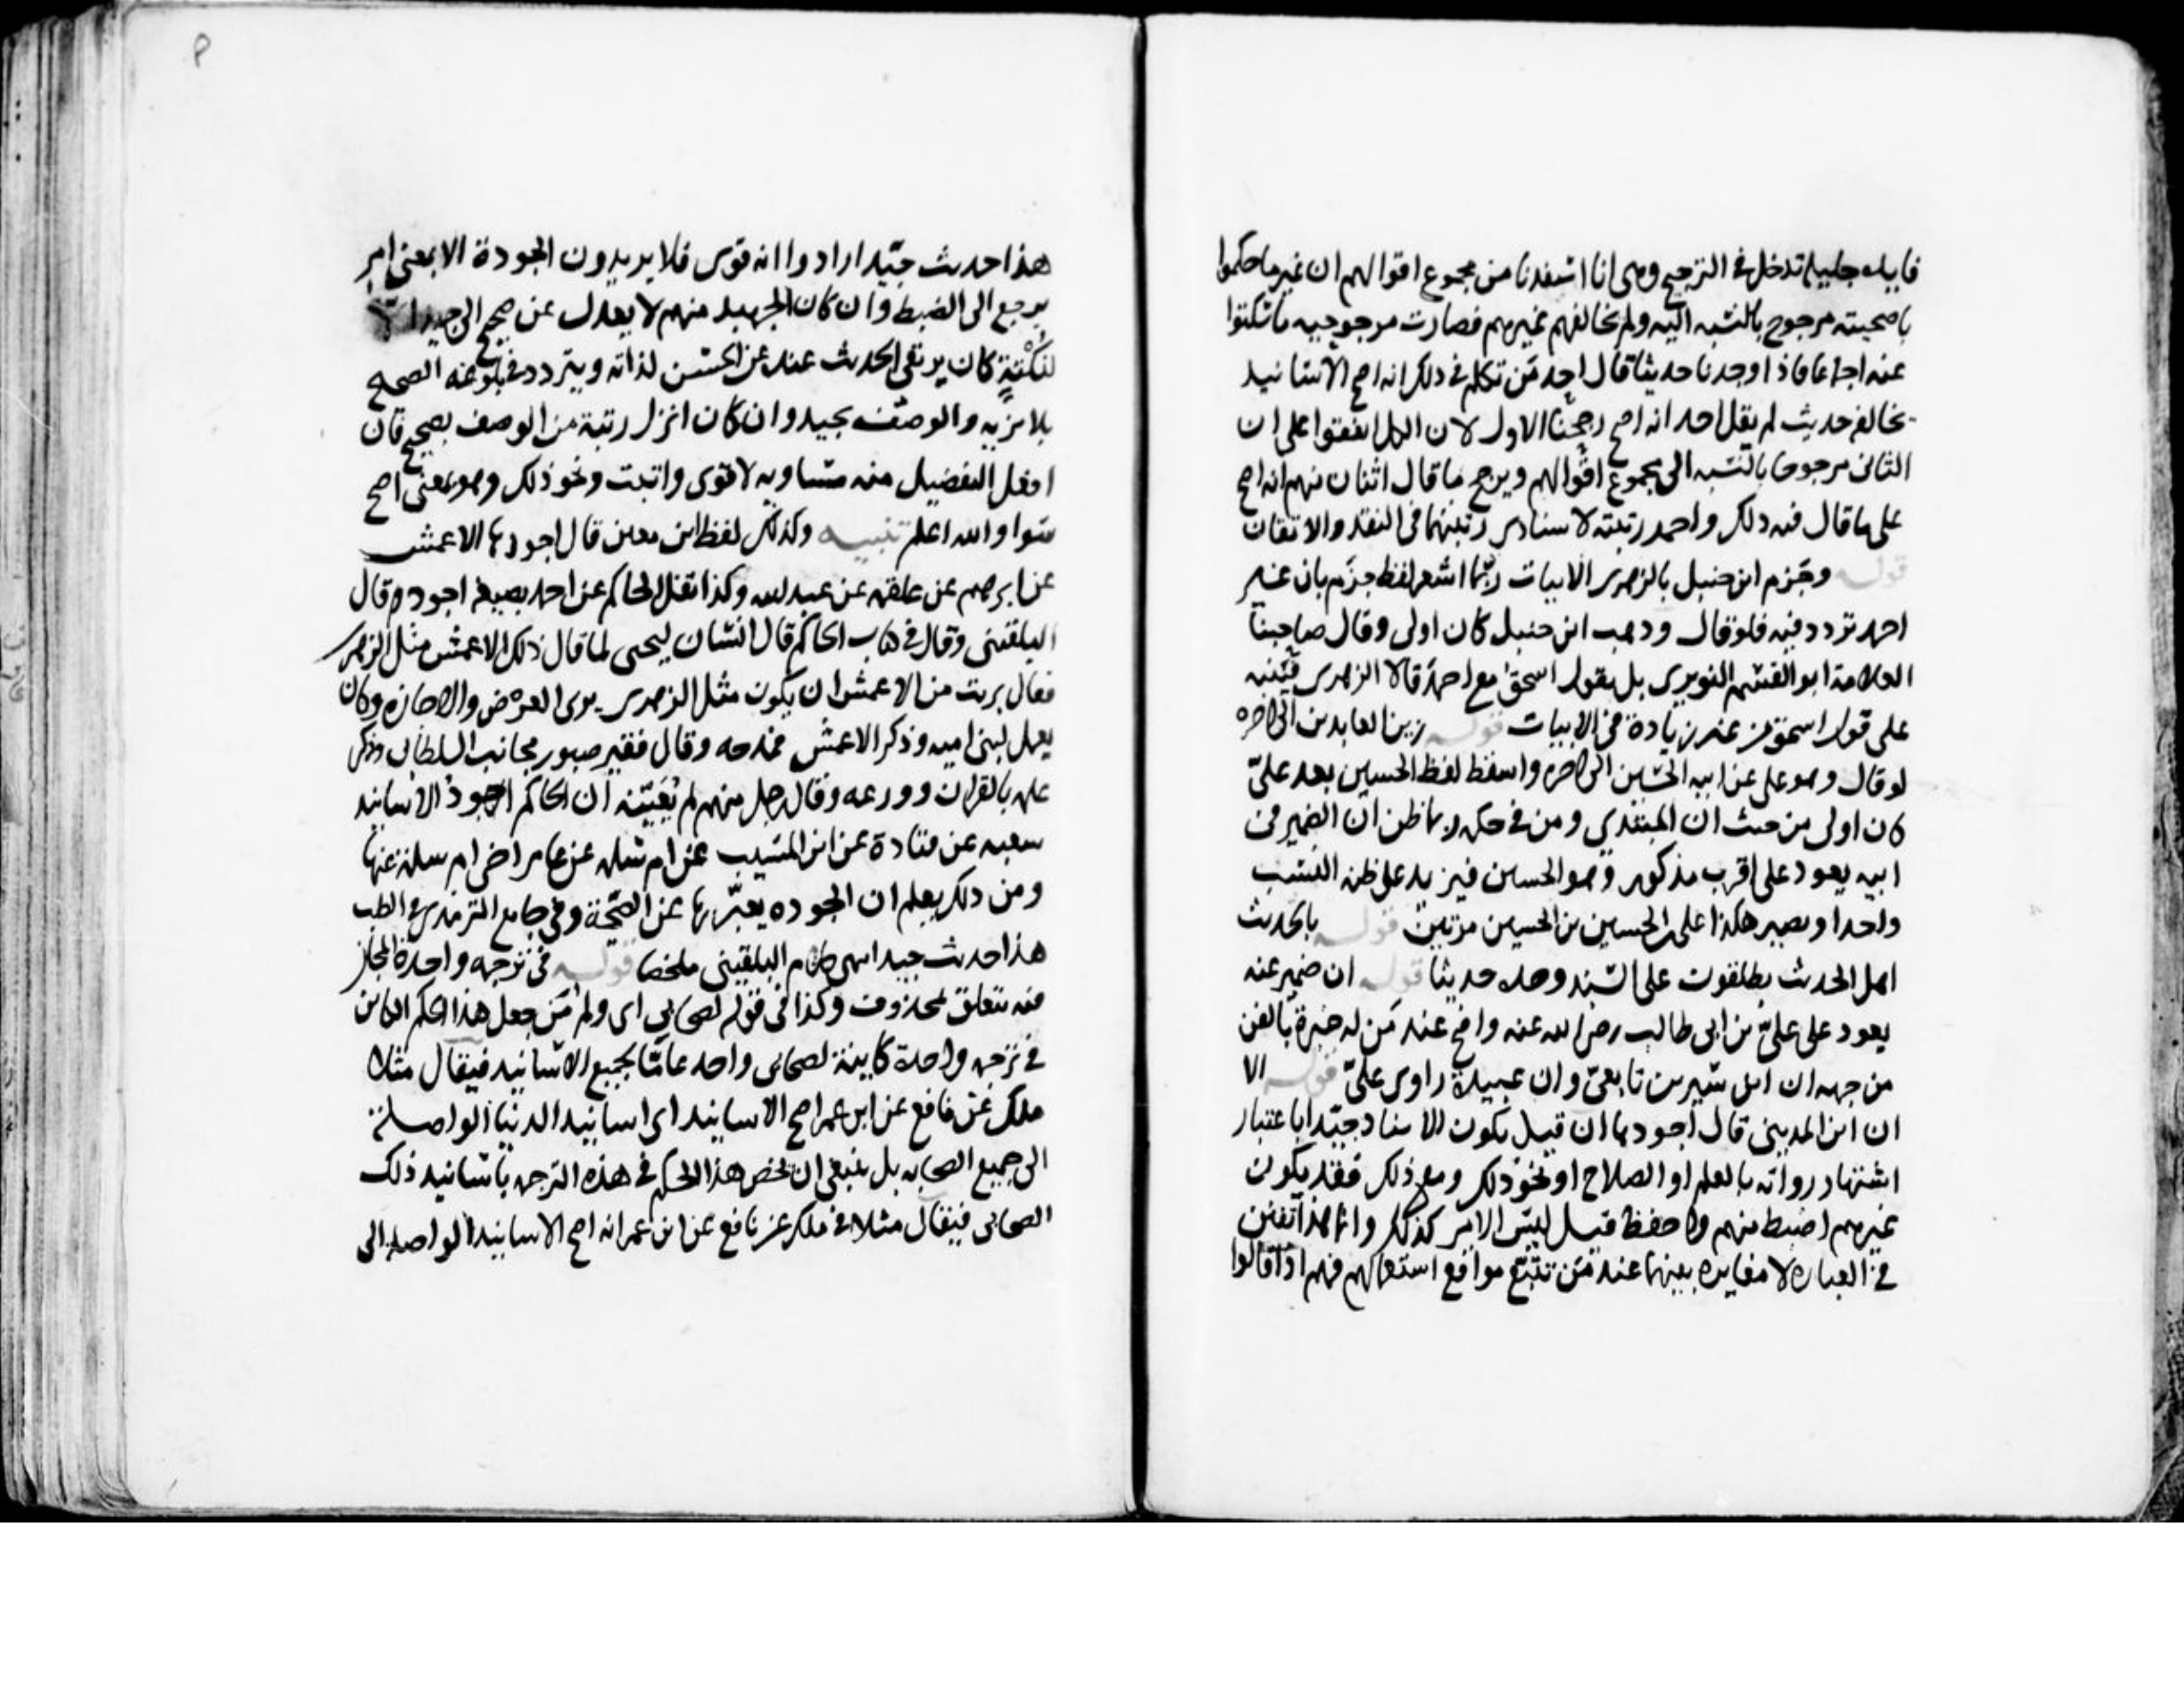 فايده جليله تدخل في الترجيح وهي انا استفدنا من مجموع اقوالهم ان غير ما حكموا
باصحيته مرجوح بالنسبة اليه ولم يخالفهم غيرهم فصارت مرجوحيه ما سكتوا
عنه اجماعا فاذا وجدنا حديثا قال احد من تكلم في ذلك انه اصح الاسانيد
يخالفه حديث لم يقل احد انه اصح رجحنا الاول لان الكل اتفقوا على ان
الثاني مرجوحا بالنسبه الى مجموع اقوالهم ويرجح ما قال اثنان منهم انه اصح
على ما قال فيه ذلك واحد رتبته لاستاذي رتبتهما في النقد والاتقان
قوله وجزم ابن حنبل بالزهري الابيات ربما اشعر لفظ جزم بان غير
احمد تردد فيه فلو قال وذهب ابن حنبل كان اولى وقال صاحبنا
العلامة ابو القسم النويري بل يقول اسحق مع احمد قالا الزهري فنبه
على قول اسحق من غير زيادة في الابيات قوله زين العابدين الى اخره
لو قال وهو علي عن ابيه الحسين الى اخره واسقط لفظ الحسين بعد علي
كان اولى من حيث ان المبتدي ومن في حكمه ربما ظن ان الضمير في
ابيه يعود على اقرب مذكور وهو الحسين فيزيد على ظنه النسب
واحدا ويصير هكذا علي بن الحسين بن الحسين مرتين قوله بالحديث
اهل الحديث يطلقون على السند وحده حديثا قوله ان ضمير عنه
يعود على علي بن ابي طالب رضي الله عنه واضح عند من له خبرة بالفن
من جهه ان ابن سيرين تابعي وان عبيدة راوي علي قوله الا
ان ابن المديني قال اجودها ان قيل يكون الاسناد جيدا باعتبار
اشتهار رواته بالعلم او الصلاح او نحو ذلك ومع ذلك فقد يكون
غيرهم اضبط منهم واحفظ قيل ليس الامر كذلك وانما هذا تفنن
في العباره لا مغايره بينهما عند من تتبع مواقع استعمالهم فهم اذا قالوا
هذا حديث جيد ارادوا انه قوي فلا يريدون الجودة الا بمعنى امر
يرجع الى الضبط وان كان الجهبذ منهم لا يعدل عن صحيح الى جيد الا
لنكتة كان يرتقي الحديث عنده عن الحسن لذاته ويتردد في بلوغه الصحيح
بلا مزيه والوصف بجيد وان كان انزل رتبة من الوصف بصحيح فان
افعل التفضيل منه مساويه لاقوى واثبت ونحو ذلك وهو بمعنى اصح
سوا والله اعلم تنبيه وكذلك لفظ ابن معين قال اجودها الاعمش
عن ابرهيم عن علقمه عن عبد الله وكذا نقل الحاكم عن احمد بصيغة اجود وقال
البلقيني وقال في كتاب الحاكم قال انسان ليحيى لما قال ذلك الاعمش مثل الزهري
فقال بريت من الاعمش ان يكون مثل الزهري يرى العرض والاجازه وكان
يعمل لبني اميه وذكر الاعمش فمدحه وقال فقير صبور مجانب السلطان وذكر
علمه بالقران وورعه وقال رجل منهم لم يعينه ان الحاكم اجود الاسانيد
سعيه عن قتادة عن ابن المسيب عن ام سلمه عن عامر اخي ام سلمة عنها
ومن ذلك يعلم ان الجوده يعبر بها عن الصحة وفي جامع الترمذي في الطب
هذا حديث جيد انتهى كلام البلقيني ملخصا قوله في ترجمه واحدة الجار
فيه يتعلق بمحذوف وكذا في قوله لصحابي اي ولم من جعل هذا الحكم الكاين
في ترجمه واحدة كاينة لصحابي واحد عاما لجميع الاسانيد فيقال مثلا
ملك عن نافع عن ابن عمر اصح الاسانيد اي اسانيد الدنيا الواصلة
الى جميع الصحابه بل ينبغي ان يخص هذا الحكم في هذه الترجمه باسانيد ذلك
الصحابي فيقال مثلا في ملك عن نافع عن ابن عمر انه اصح الاسانيد الواصله الى